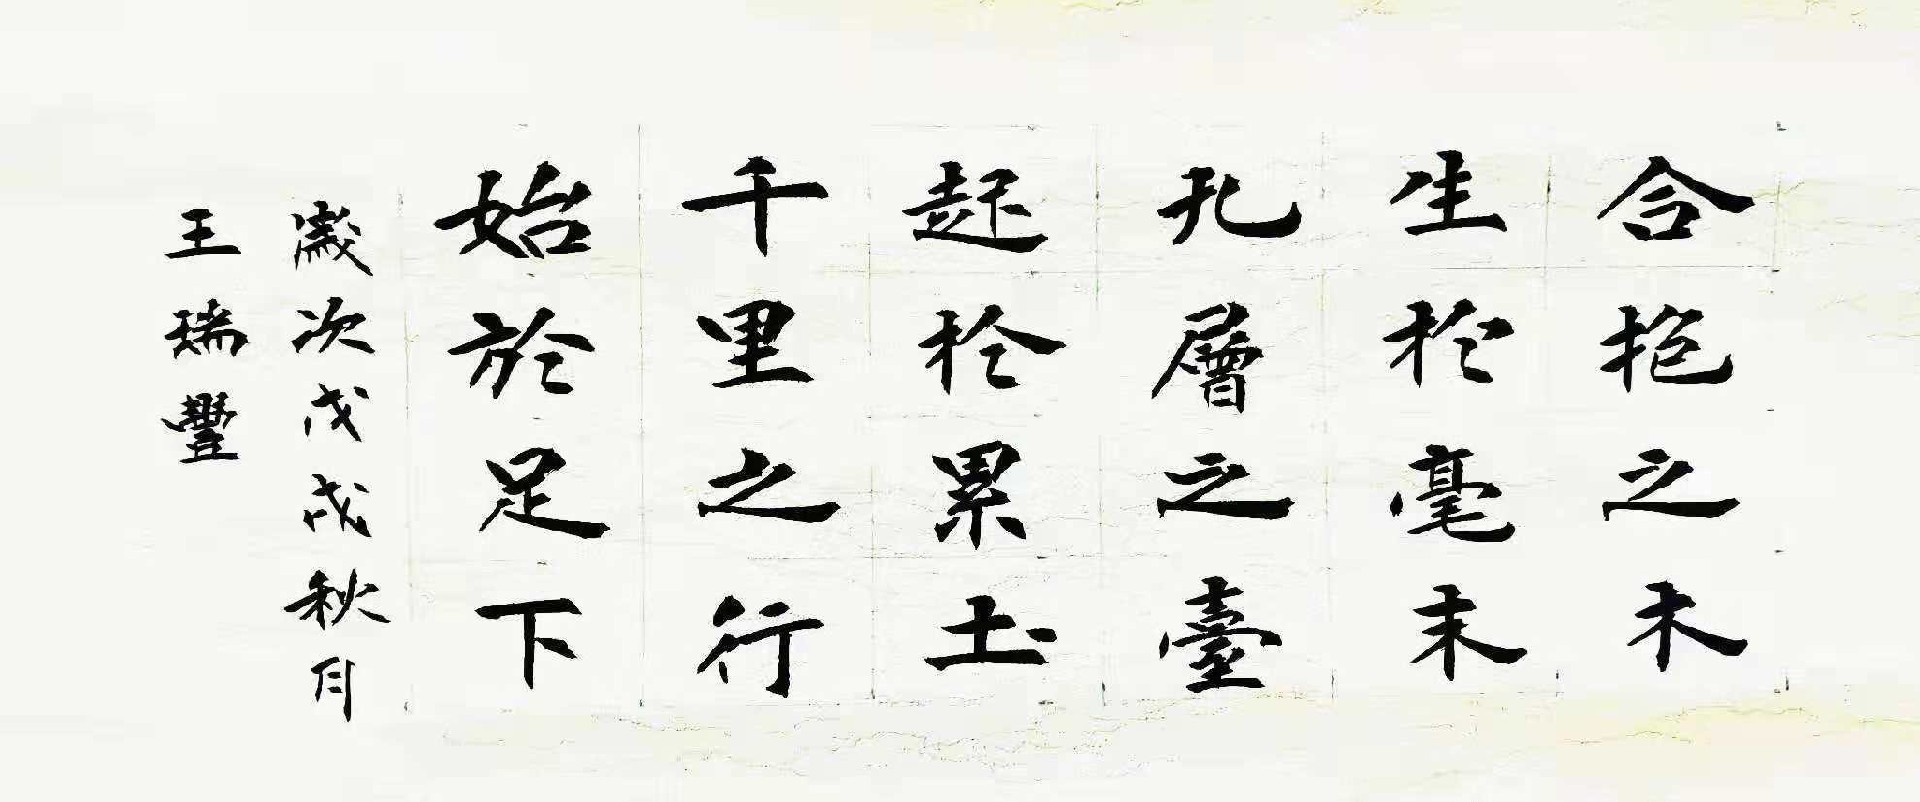 合抱之木
生於毫末
九層之臺
起於累土
千里之行
始於足下
歲次戊戌秋月
王瑞豐